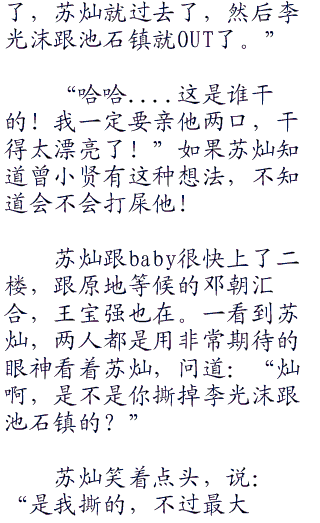 了，苏灿就过去了，然后李
光沫跟池石镇就OUT了。”
“哈哈....这是谁干
的！我一定要亲他两口，干
得太漂亮了！”如果苏灿知
道曾小贤有这种想法，不知
道会不会打屎他！
苏灿跟baby很快上了二
楼，跟原地等候的邓朝汇
合，王宝强也在。一看到苏
灿，两人都是用非常期待的
眼神看着苏灿，问道：“灿
啊，是不是你撕掉李光沫跟
池石镇的？”
苏灿笑着点头，说：
“是我撕的，不过最大